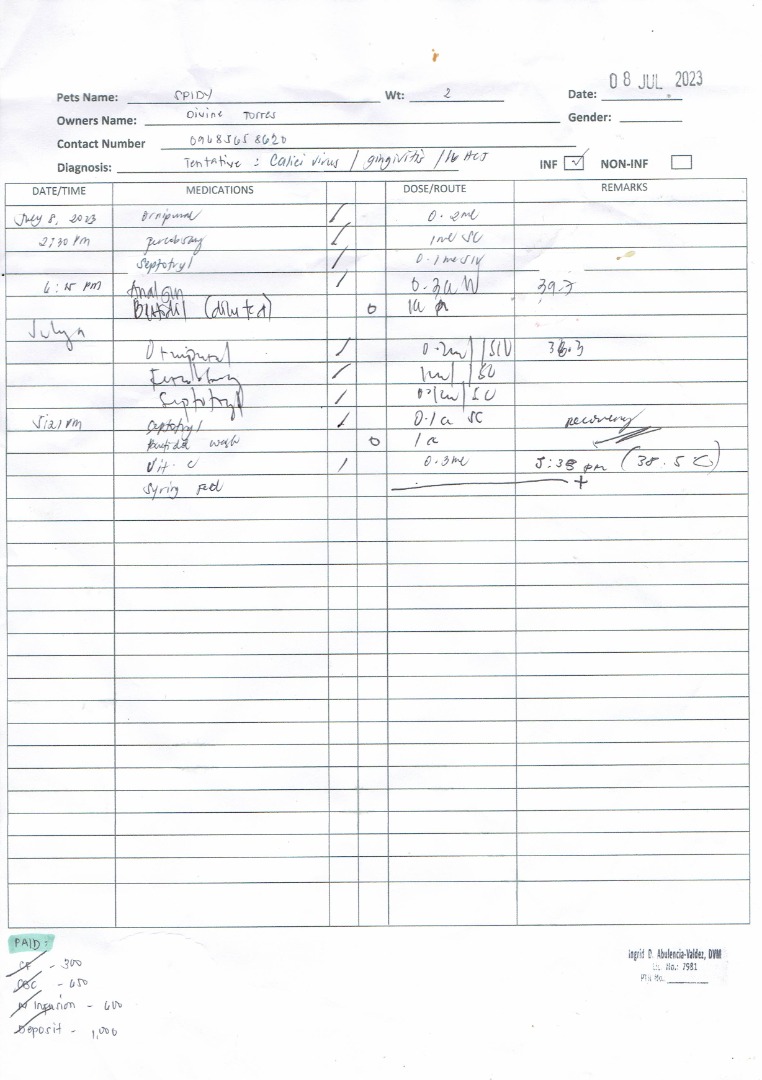 08 JUL 2023
Pets Name: SPIDY Wt: 2 Date:
Owners Name: Divine Torres Gender:
Contact Number
Diagnosis: Tentative : Calici virus / gingivitis / INF ✓ NON-INF
DATE/TIME MEDICATIONS DOSE/ROUTE REMARKS
July 8, 2023 Ornipural / 0.2ml
2:30 PM / 1ml SC
Septotryl / 0.1ml SIV
6:15 PM Analgin / 39.7
(diluted) o
July
Ornipural / 0.2ml / SIV
/ 1ml / SC
Septotryl / 0.1ml / SC
5:21 PM Septotryl / 0.1 SC recovery
wash o
Vit. C / 0.3ml 5:35 pm (38.5 C)
Syring Fed +
PAID:
CF - 300
CBC - 650
Infusion - 600
Deposit - 1,000
Ingrid D. Abulencia-Valdez, DVM
Lic. No.: 7981
PTR No.